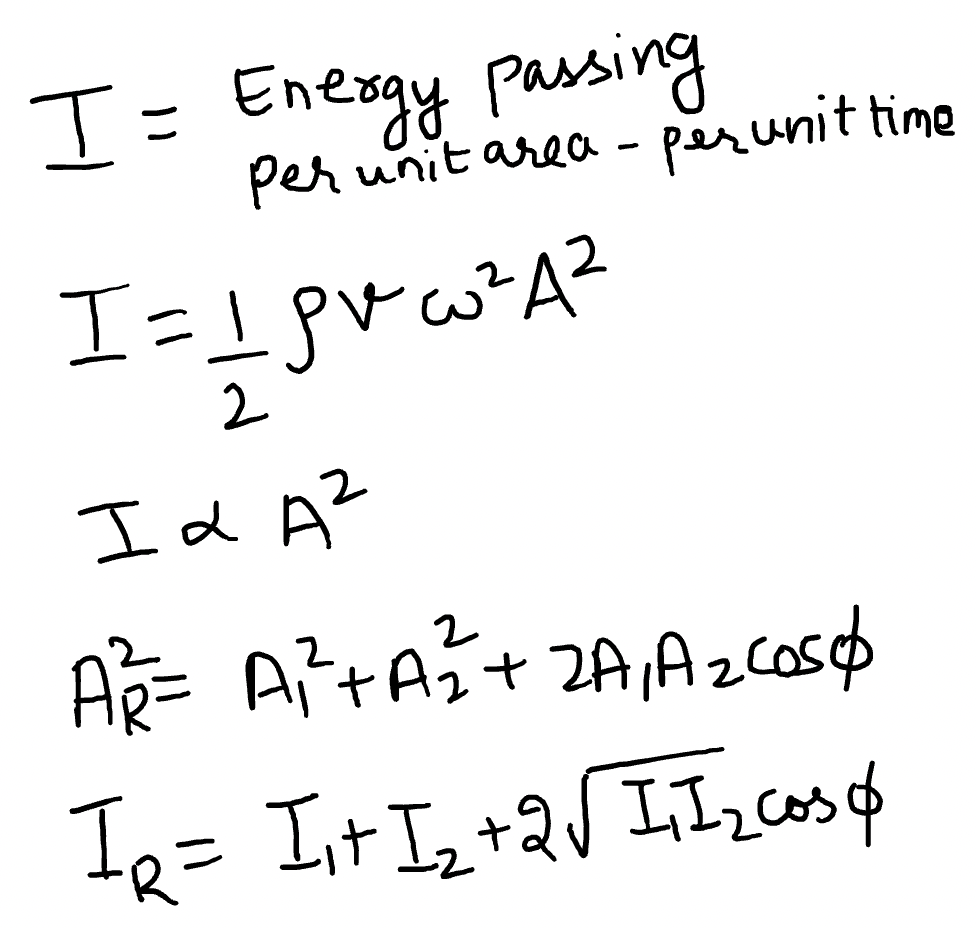 I = Energy passing
per unit area - per unit time
I = 1/2 ρvω²A²
I ∝ A²
A_R² = A₁² + A₂² + 2A₁A₂cosϕ
I_R = I₁ + I₂ + 2√(I₁I₂) cosϕ